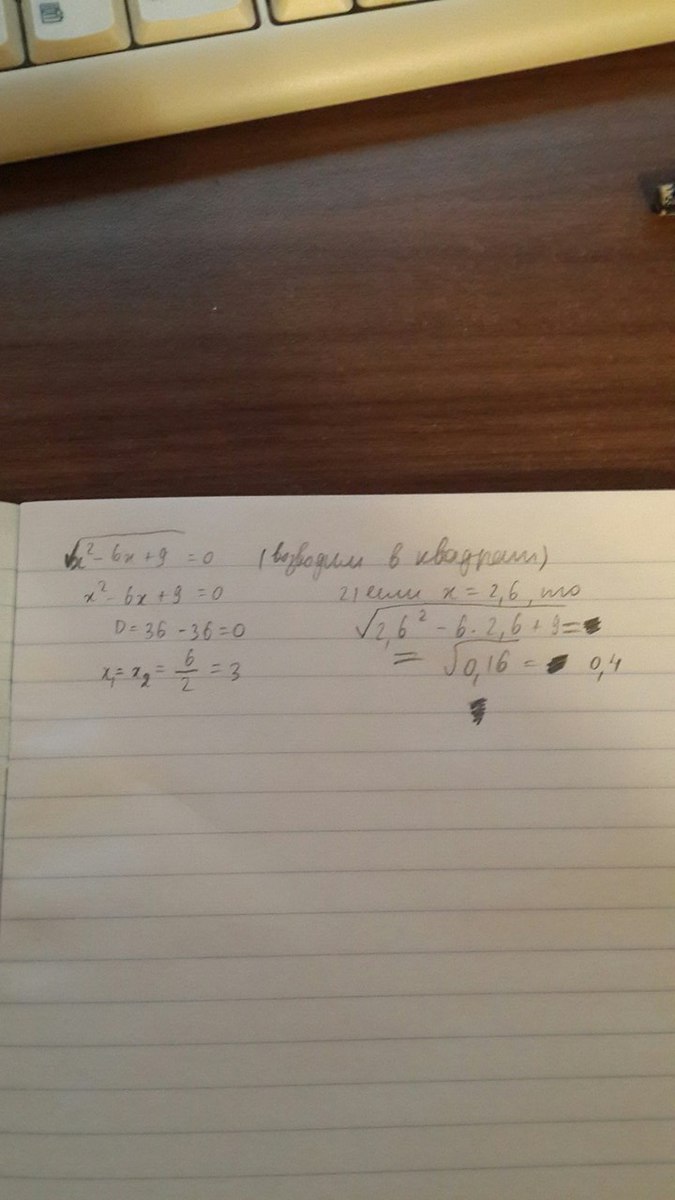 √x² - 6x + 9 = 0 (возводим в квадрат)
x² - 6x + 9 = 0
D = 36 - 36 = 0
x₁ = x₂ = 6/2 = 3
2) если x = 2,6, то
√2,6² - 6 · 2,6 + 9 =
= √0,16 = 0,4